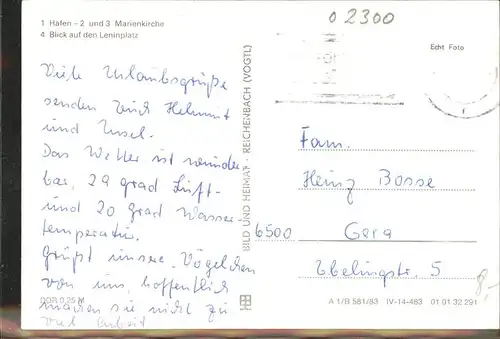 1 Hafen - 2 und 3 Marienkirche
4 Blick auf den Leninplatz
02300
Echt Foto
Viele Urlaubsgrüße
senden Euch Helmut
und Ursel.
Das Wetter ist wunder
bar, 29 grad Luft-
und 20 grad Wasser-
temperatur.
Grüßt unsere Vögelchen
von uns, hoffentlich
machen sie nicht zu
viel Arbeit
DDR 0,25 M
BILD UND HEIMAT · REICHENBACH (VOGTL)
Fam.
Heinz Bosse
6500 Gera
Ebelingstr. 5
8,-
A 1/B 581/83 IV-14-483 01 01 32 291